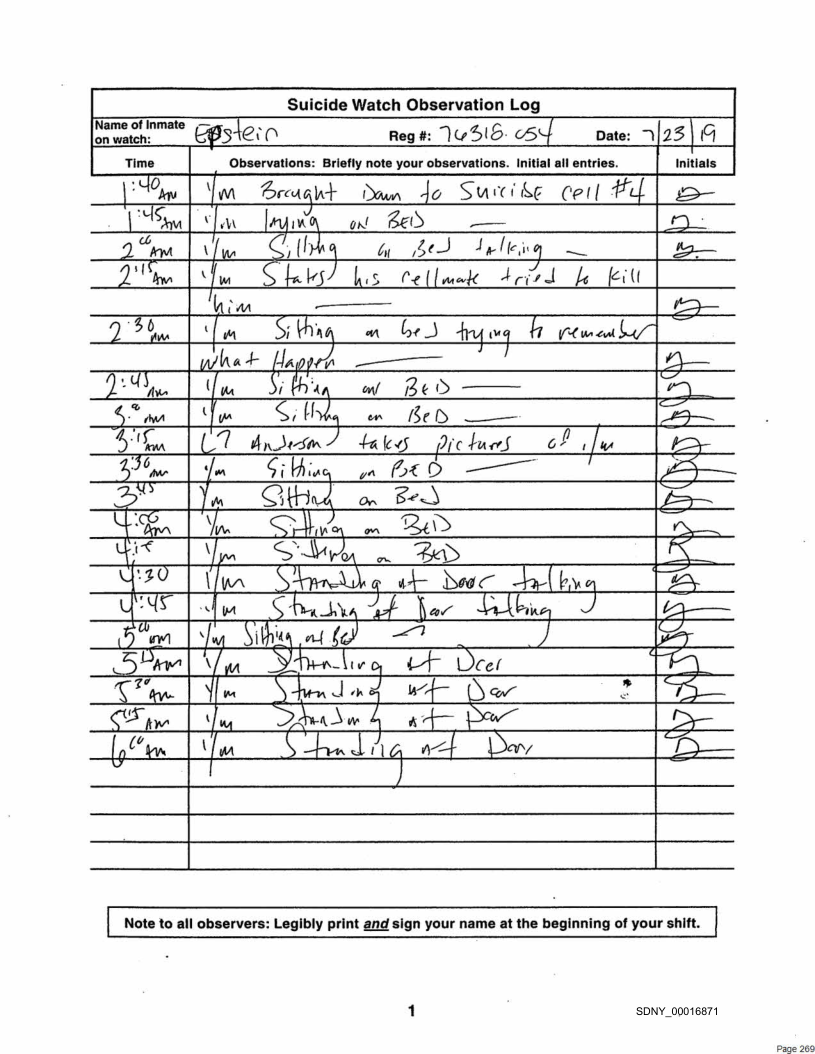 Suicide Watch Observation Log
Name of Inmate on watch: Epstein Reg #: 76318-054 Date: 7/23/19
Time Observations: Briefly note your observations. Initial all entries. Initials
1:40 AM I/M Brought Down to SuiciDE Cell #4
1:45 AM I/M laying on BED —
2:00 AM I/M Sitting on Bed talking —
2:15 AM I/M States his cellmate tried to kill
him —
2:30 AM I/M Sitting on bed trying to remember
what Happen —
2:45 AM I/M Sitting on BED —
3:00 AM I/M Sitting on BED —
3:15 AM LT Anderson takes pictures of I/M
3:30 AM I/M Sitting on BED —
3:45 I/M Sitting on Bed
4:00 AM I/M Sitting on BED
4:15 I/M Sitting on BED
4:30 I/M Standing at Door talking
4:45 I/M Standing at Door talking
5:00 AM I/M Sitting on Bed —
5:15 AM I/M Standing at Door
5:30 AM I/M Standing at Door
AM I/M Standing at Door
6:00 AM I/M Standing at Door
Note to all observers: Legibly print and sign your name at the beginning of your shift.
1
SDNY_00016871
Page 269